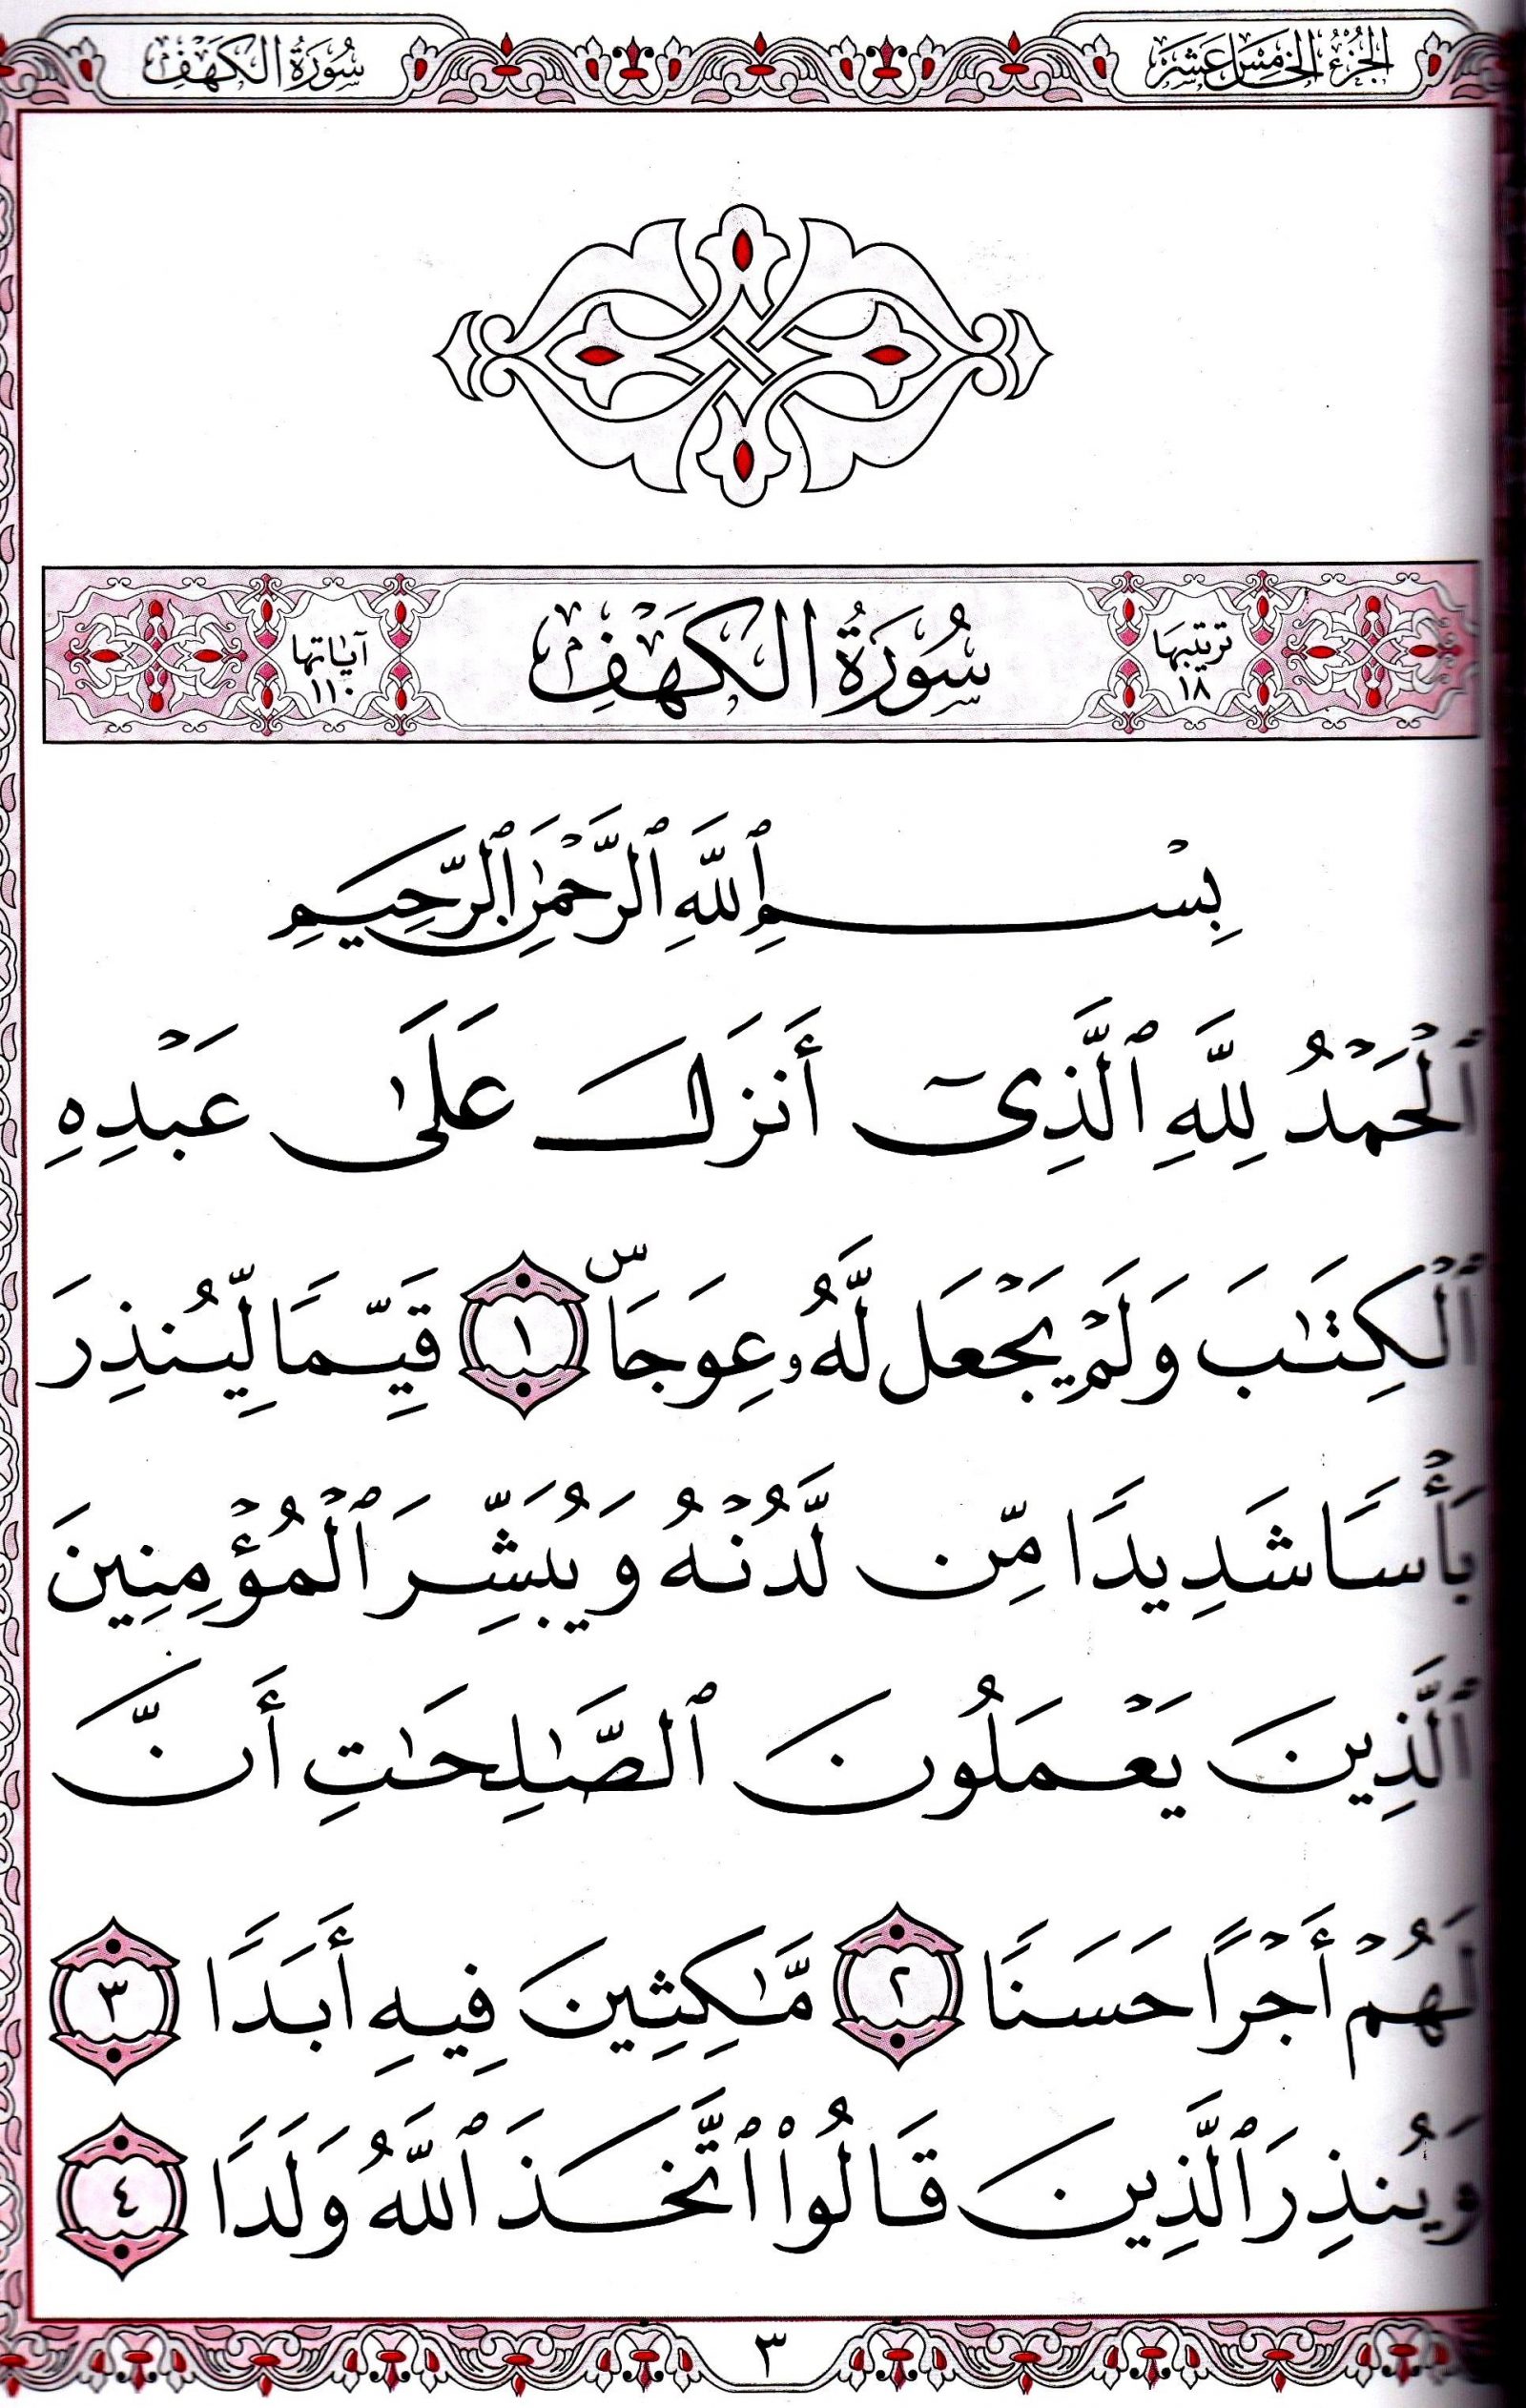 الجُزْءُ الخَامِسَ عَشَرَ سُورَةُ الكَهْفِ
ترتيبها ١٨ سُورَةُ الكَهْفِ آياتها ١١٠
بِسْمِ ٱللَّهِ ٱلرَّحْمَٰنِ ٱلرَّحِيمِ
ٱلْحَمْدُ لِلَّهِ ٱلَّذِىٓ أَنزَلَ عَلَىٰ عَبْدِهِ
ٱلْكِتَٰبَ وَلَمْ يَجْعَل لَّهُۥ عِوَجَاۜ ١ قَيِّمًا لِّيُنذِرَ
بَأْسًا شَدِيدًا مِّن لَّدُنْهُ وَيُبَشِّرَ ٱلْمُؤْمِنِينَ
ٱلَّذِينَ يَعْمَلُونَ ٱلصَّٰلِحَٰتِ أَنَّ
لَهُمْ أَجْرًا حَسَنًا ٢ مَّٰكِثِينَ فِيهِ أَبَدًا ٣
وَيُنذِرَ ٱلَّذِينَ قَالُوا۟ ٱتَّخَذَ ٱللَّهُ وَلَدًا ٤
٣